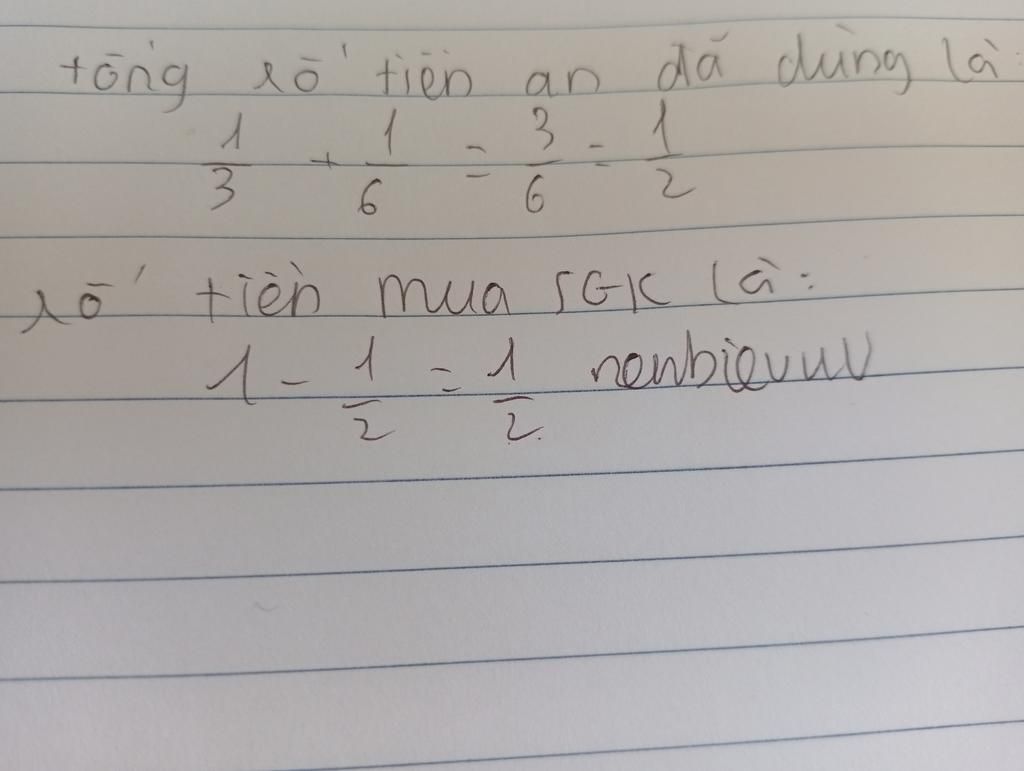 tổng số tiền an đã dùng là:
1/3 + 1/6 = 3/6 = 1/2
số tiền mua SGK là:
1 - 1/2 = 1/2